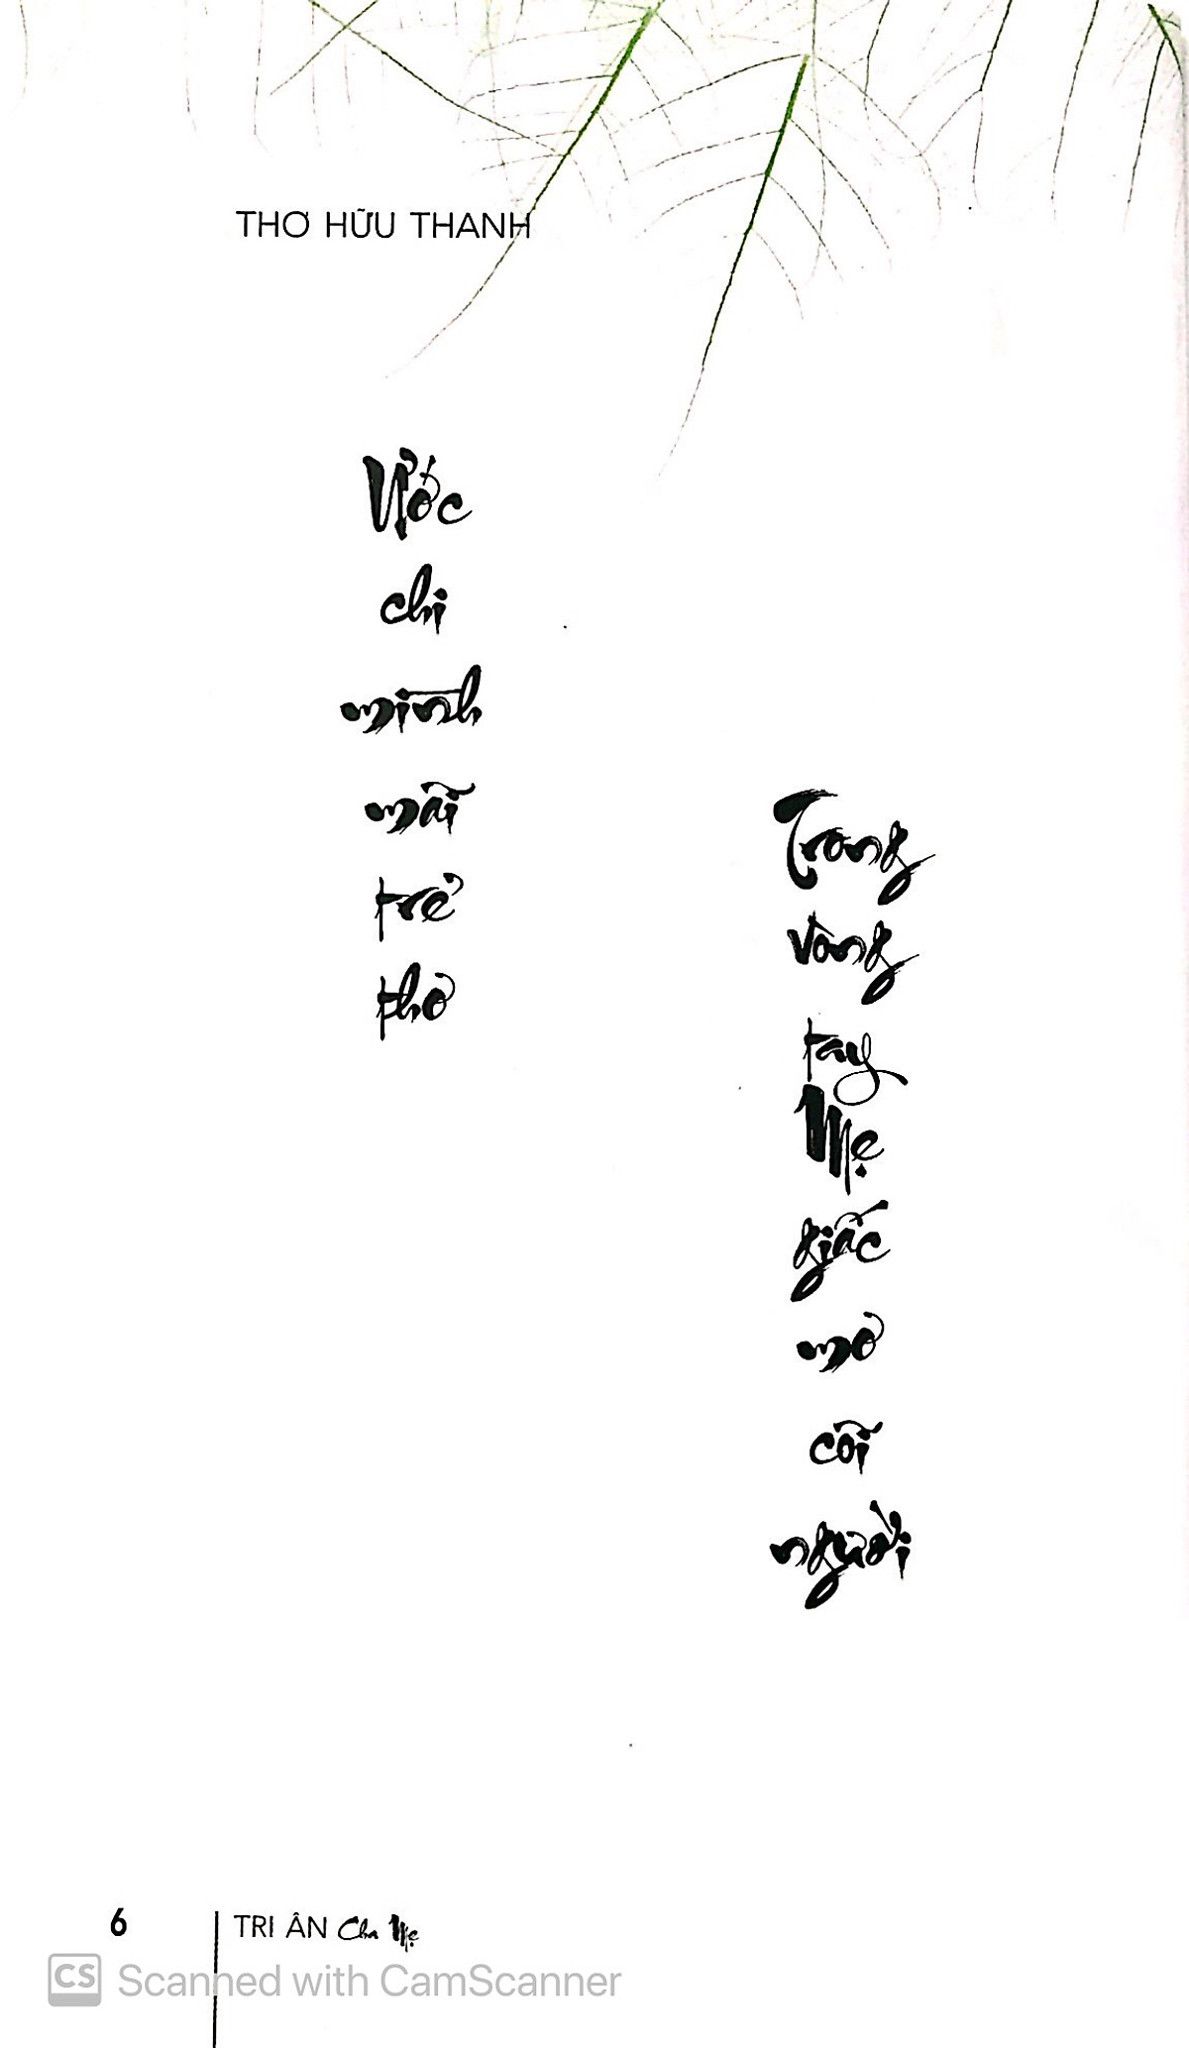 THƠ HỮU THANH
Ước
chi
mình
mãi
trẻ
thơ
Trong
vòng
tay
Mẹ
giấc
mơ
cõi
người
6
TRI ÂN Cha Mẹ
CS Scanned with CamScanner